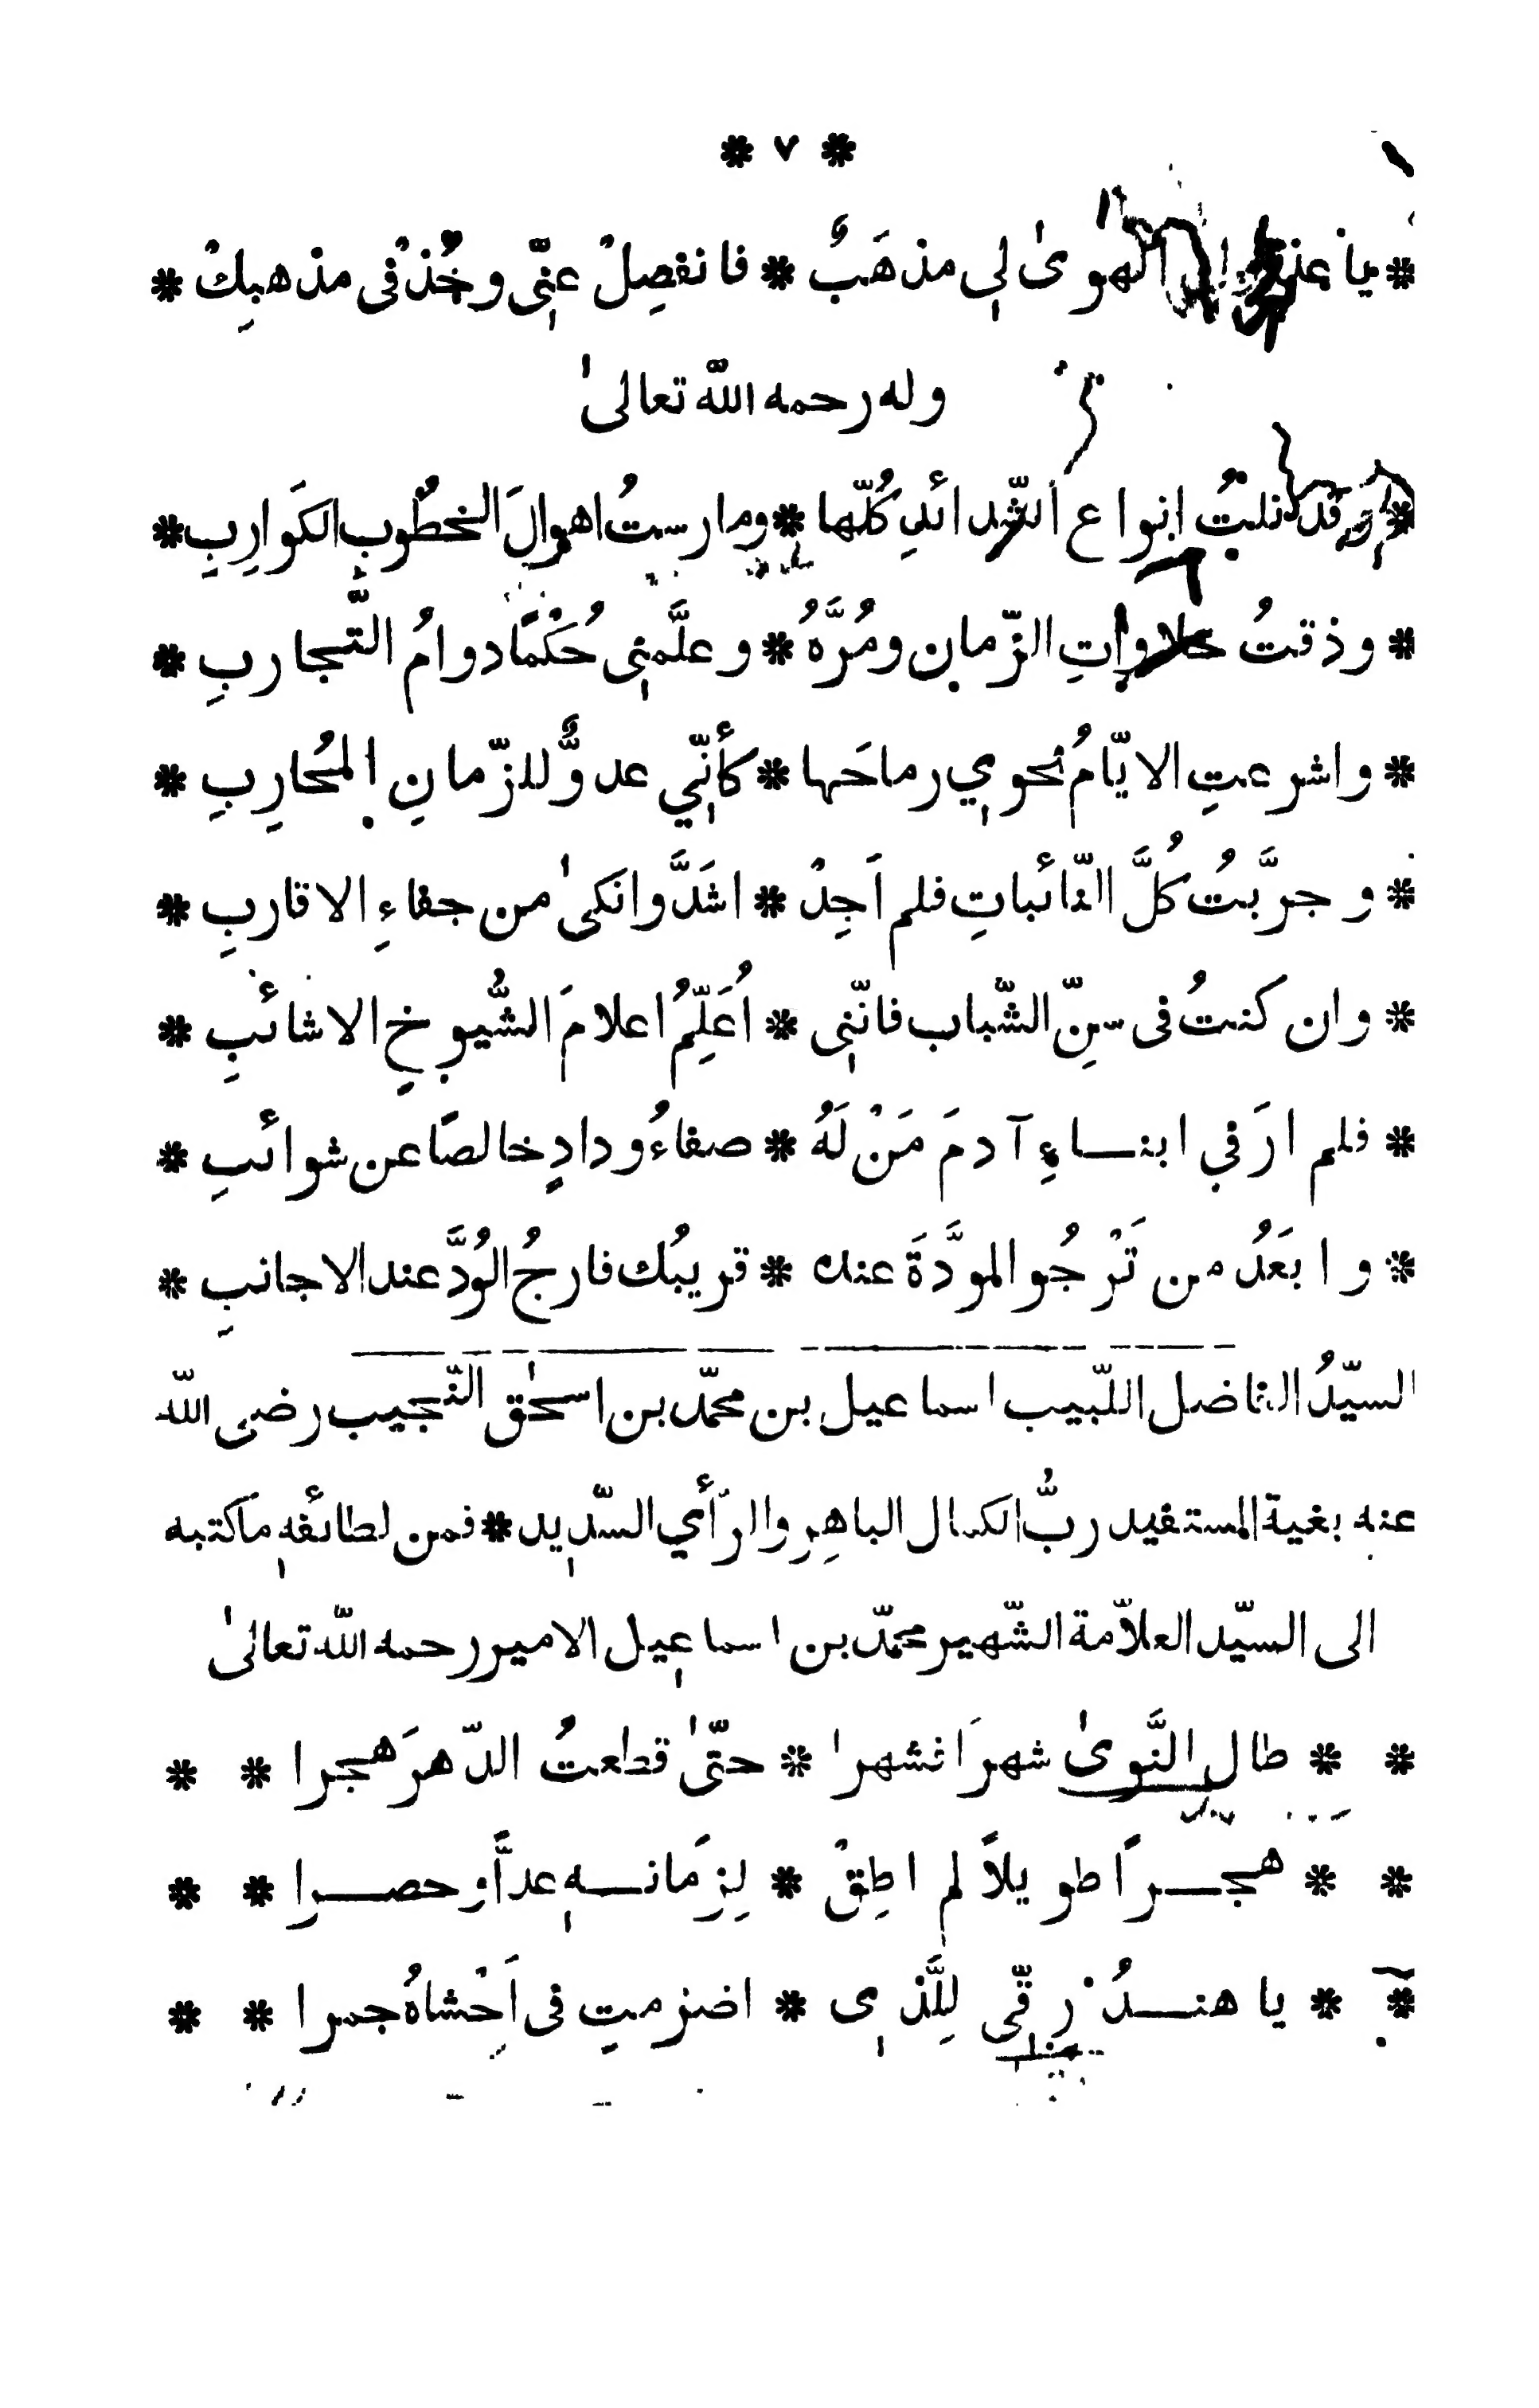 * ٧ *
* يا الهوىٰ لي مذهَبٌ * فانفصِلْ عنّي وخُذْ في مذهبِكْ *
وله رحمه اللّه تعالىٰ
* وقد نلتُ انواع الشّدائدِ كُلّها * ومارستُ اهوالَ الخطُوبِ الكَوارِبِ *
* وذقتُ حلاواتِ الزّمان ومُرَّهُ * وعلَّمني حُكْمًا دوامُ التَّجاربِ *
* واشرعتِ الايّامُ نحوي رماحَها * كأنّي عدوٌّ للزّمانِ المُحارِبِ *
* وجرَّبتُ كُلَّ النّائباتِ فلم اَجِدْ * اشَدَّ وانَكىٰ من جفاءِ الاقاربِ *
* وان كنتُ في سنِّ الشّباب فانّني * اُعَلِّمُ اعلامَ الشُّيوخِ الاشائبِ *
* فلم ارَ في ابنـاءِ آدمَ مَنْ لَهُ * صفاءُ ودادٍ خالصًا عن شوائبِ *
* وابعَدُ من تَرْجُو المودَّةَ عنده * قريبُك فارجُ الوُدَّ عند الاجانبِ *
السيّدُ الفاضل اللّبيب اسماعيل بن محمّد بن اسحٰق النّجيب رضي اللّه
عنه بغية المستفيد ربُّ الكمال الباهِرِ والرّأي السّديد * فمن لطائفهِ ماكتبه
الى السيّد العلاّمة الشّهير محمّد بن اسماعيل الامير رحمه اللّه تعالىٰ
* * طال النَّوىٰ شهرًا فشهرا * حتّىٰ قطعتُ الدّهرَ هجرا * *
* * هجـرًا طويلاً لم اطِقْ * لِزَمانـهِ عدًّا وحصـرا * *
* * يا هنـدُ رِقّي لِلَّذي * اضرمتِ في اَحْشاهُ جمرا * *